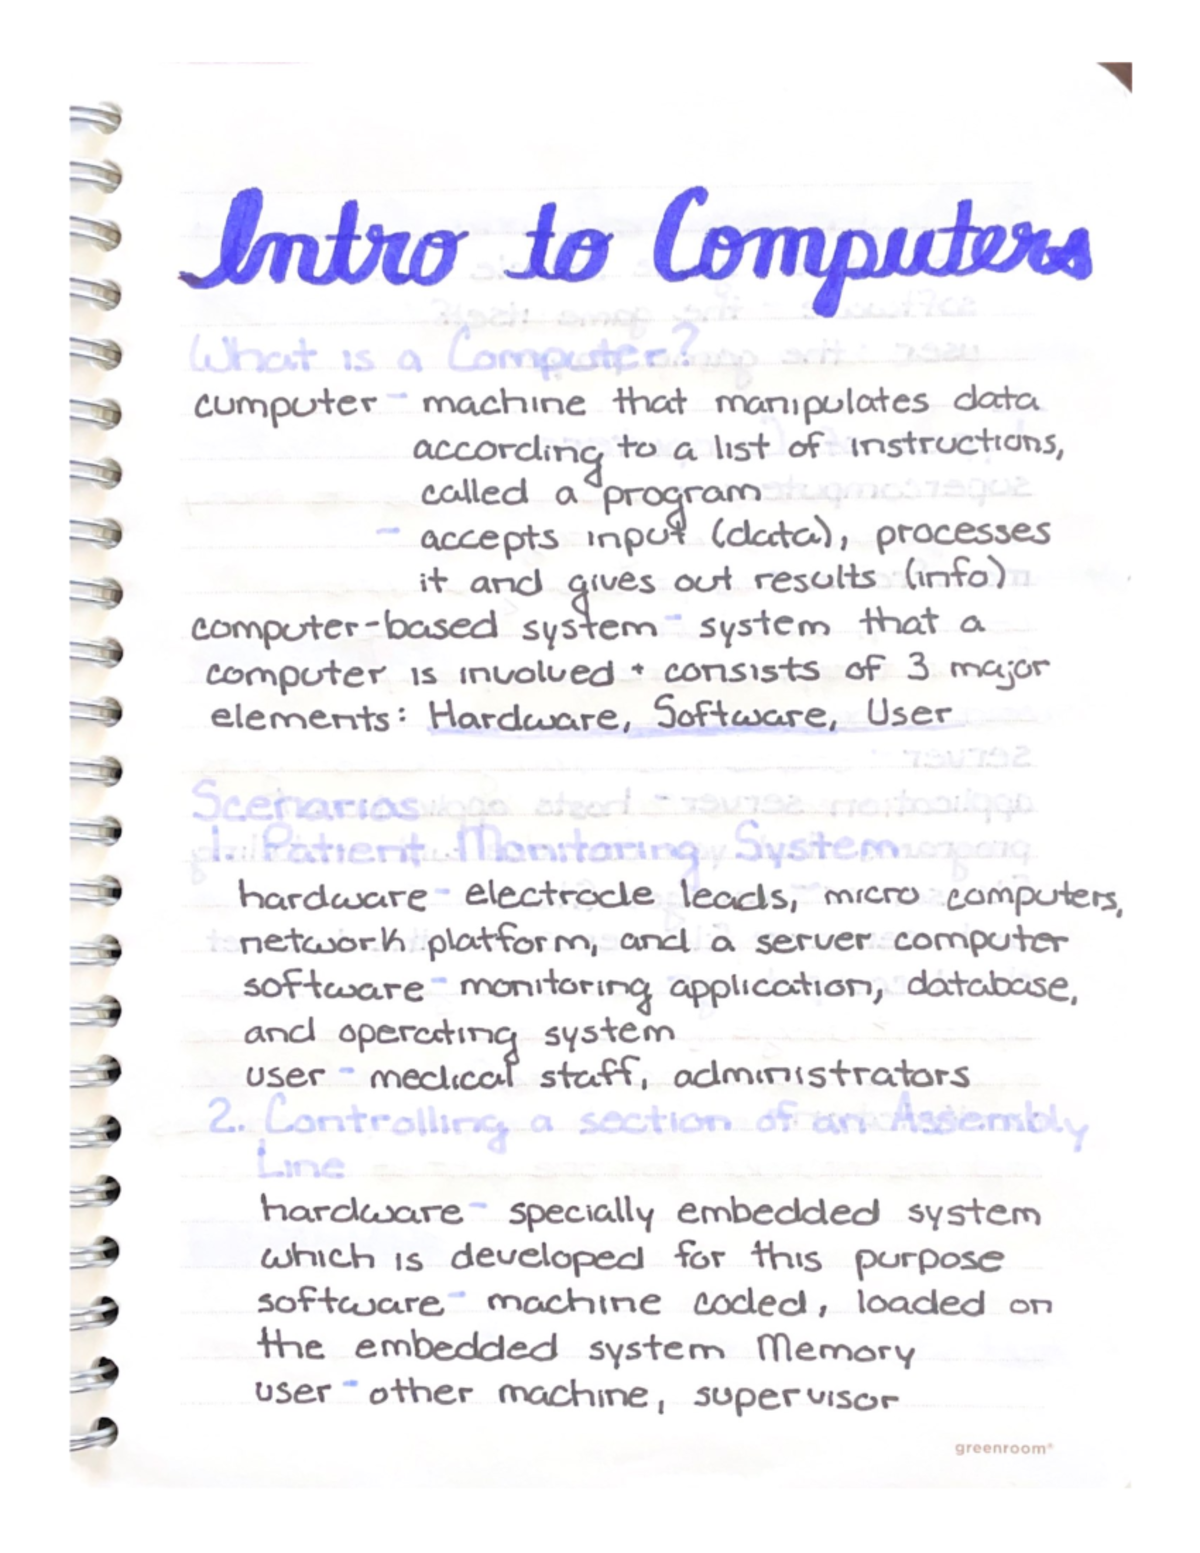 Intro to Computers
What is a Computer?
cumputer - machine that manipulates data
according to a list of instructions,
called a program
- accepts input (data), processes
it and gives out results (info)
computer-based system - system that a
computer is involved + consists of 3 major
elements: Hardware, Software, User
Scenarios
1. Patient Monitoring System
hardware - electrode leads, micro computers,
network platform, and a server computer
software - monitoring application, database,
and operating system
user - medical staff, administrators
2. Controlling a section of an Assembly
Line
hardware - specially embedded system
which is developed for this purpose
software - machine coded, loaded on
the embedded system Memory
user - other machine, supervisor
greenroom®